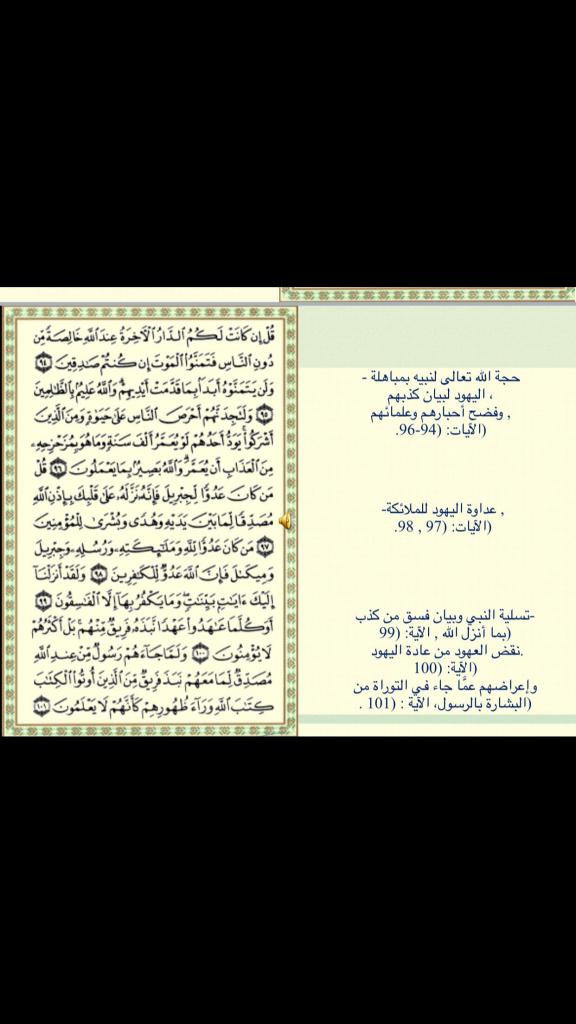 قُلْ إِن كَانَتْ لَكُمُ الدَّارُ الْآخِرَةُ عِندَ اللَّهِ خَالِصَةً مِّن
دُونِ النَّاسِ فَتَمَنَّوُا الْمَوْتَ إِن كُنتُمْ صَادِقِينَ ٩٤
وَلَن يَتَمَنَّوْهُ أَبَدًا بِمَا قَدَّمَتْ أَيْدِيهِمْ وَاللَّهُ عَلِيمٌ بِالظَّالِمِينَ
٩٥ وَلَتَجِدَنَّهُمْ أَحْرَصَ النَّاسِ عَلَىٰ حَيَوٰةٍ وَمِنَ الَّذِينَ
أَشْرَكُوا يَوَدُّ أَحَدُهُمْ لَوْ يُعَمَّرُ أَلْفَ سَنَةٍ وَمَا هُوَ بِمُزَحْزِحِهِ
مِنَ الْعَذَابِ أَن يُعَمَّرَ وَاللَّهُ بَصِيرٌ بِمَا يَعْمَلُونَ ٩٦ قُلْ
مَن كَانَ عَدُوًّا لِّجِبْرِيلَ فَإِنَّهُ نَزَّلَهُ عَلَىٰ قَلْبِكَ بِإِذْنِ اللَّهِ
مُصَدِّقًا لِّمَا بَيْنَ يَدَيْهِ وَهُدًى وَبُشْرَىٰ لِلْمُؤْمِنِينَ
٩٧ مَن كَانَ عَدُوًّا لِّلَّهِ وَمَلَٰئِكَتِهِ وَرُسُلِهِ وَجِبْرِيلَ
وَمِيكَىٰلَ فَإِنَّ اللَّهَ عَدُوٌّ لِّلْكَٰفِرِينَ ٩٨ وَلَقَدْ أَنزَلْنَا
إِلَيْكَ ءَايَٰتٍ بَيِّنَٰتٍ وَمَا يَكْفُرُ بِهَا إِلَّا الْفَٰسِقُونَ ٩٩
أَوَكُلَّمَا عَٰهَدُوا عَهْدًا نَّبَذَهُ فَرِيقٌ مِّنْهُم بَلْ أَكْثَرُهُمْ
لَا يُؤْمِنُونَ ١٠٠ وَلَمَّا جَاءَهُمْ رَسُولٌ مِّنْ عِندِ اللَّهِ
مُصَدِّقٌ لِّمَا مَعَهُمْ نَبَذَ فَرِيقٌ مِّنَ الَّذِينَ أُوتُوا الْكِتَٰبَ
كِتَٰبَ اللَّهِ وَرَاءَ ظُهُورِهِمْ كَأَنَّهُمْ لَا يَعْلَمُونَ ١٠١
حجة الله تعالى لنبيه بمباهلة -
، اليهود لبيان كذبهم
, وفضح أحبارهم وعلمائهم
(الآيات: (94-96.
, عداوة اليهود للملائكة-
(الآيات: (97 , 98.
-تسلية النبي وبيان فسق من كذب
(بما أنزل الله , الآية: (99
.نقض العهود من عادة اليهود
(الآية: (100
وإعراضهم عمَّا جاء في التوراة من
(البشارة بالرسول، الآية : (101 .